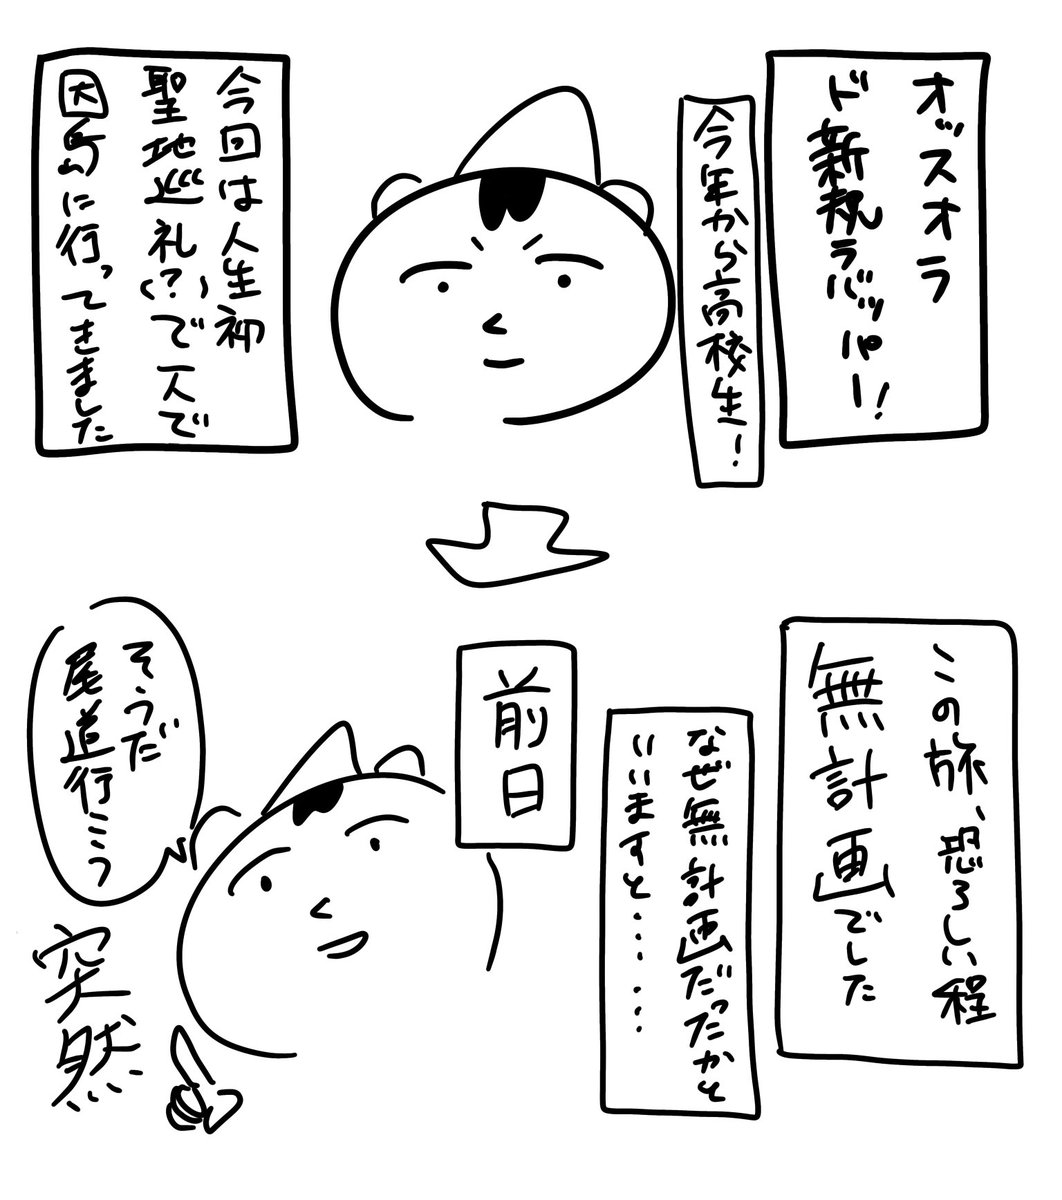 オッスオラ
ド新規ラバッパー!
今年から高校生!
今回は人生初
聖地巡礼(?)で一人で
因島に行ってきました
この旅、恐ろしい程
無計画でした
なぜ無計画だったかと
いいますと・・・・・・
前日
そうだ
尾道行こう
突然